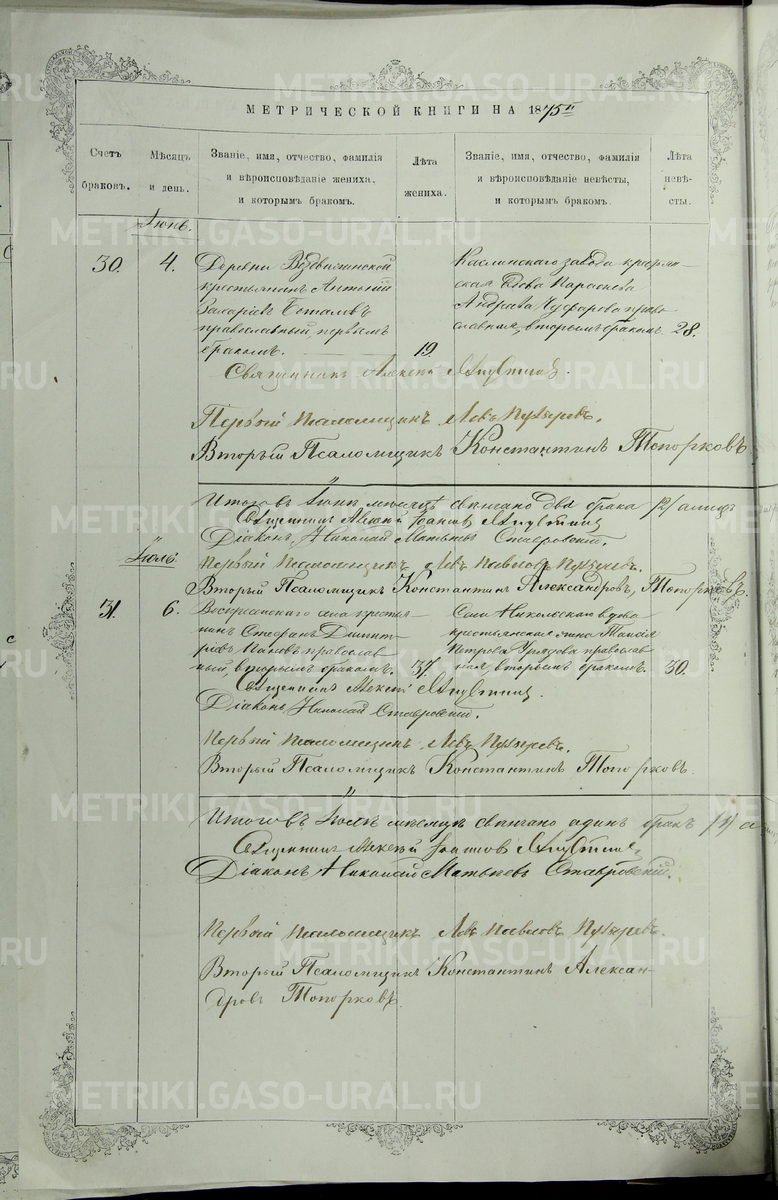 МЕТРИЧЕСКОЙ КНИГИ НА 1875й
Счетъ браковъ.
Мѣсяцъ и день.
Званіе, имя, отчество, фамилія и вѣроисповѣданіе жениха, и которымъ бракомъ.
Лѣта жениха.
Званіе, имя, отчество, фамилія и вѣроисповѣданіе невѣсты, и которымъ бракомъ.
Лѣта невѣсты.
Іюнь.
30.
4.
Деревни Воздвиженской
крестьянинъ Антоній
Захаріевъ
православный, первымъ
бракомъ.
19.
Каслинскаго завода крестьян-
ская вдова Параскева
Андреева право-
славная, вторымъ бракомъ.
28.
Священникъ Алексій
Первый Псаломщикъ Левъ
Вторый Псаломщикъ Константинъ Топорковъ
Итого въ Іюнѣ мѣсяцѣ свѣнчано два брака /2/
Священникъ Алексій Іоанновъ
Діаконъ Николай Матвѣевъ Ставровскій.
Іюль.
Первый Псаломщикъ Левъ Павловъ
Вторый Псаломщикъ Константинъ Александровъ Топорковъ.
31.
6.
Воскресенскаго села крестья-
нинъ Стефанъ Димит-
ріевъ православ-
ный, вторымъ бракомъ.
37.
Села Никольскаго вдова
крестьянская жена Таисія
Петрова православ-
ная, вторымъ бракомъ.
30.
Священникъ Алексій
Діаконъ Николай Ставровскій.
Первый Псаломщикъ Левъ
Вторый Псаломщикъ Константинъ Топорковъ.
Итого въ Іюлѣ мѣсяцѣ свѣнчано одинъ бракъ /1/
Священникъ Алексій Іоанновъ
Діаконъ Николай Матвѣевъ Ставровскій.
Первый Псаломщикъ Левъ Павловъ
Вторый Псаломщикъ Константинъ Алексан-
дровъ Топорковъ.
METRIKI.GASO-URAL.RU